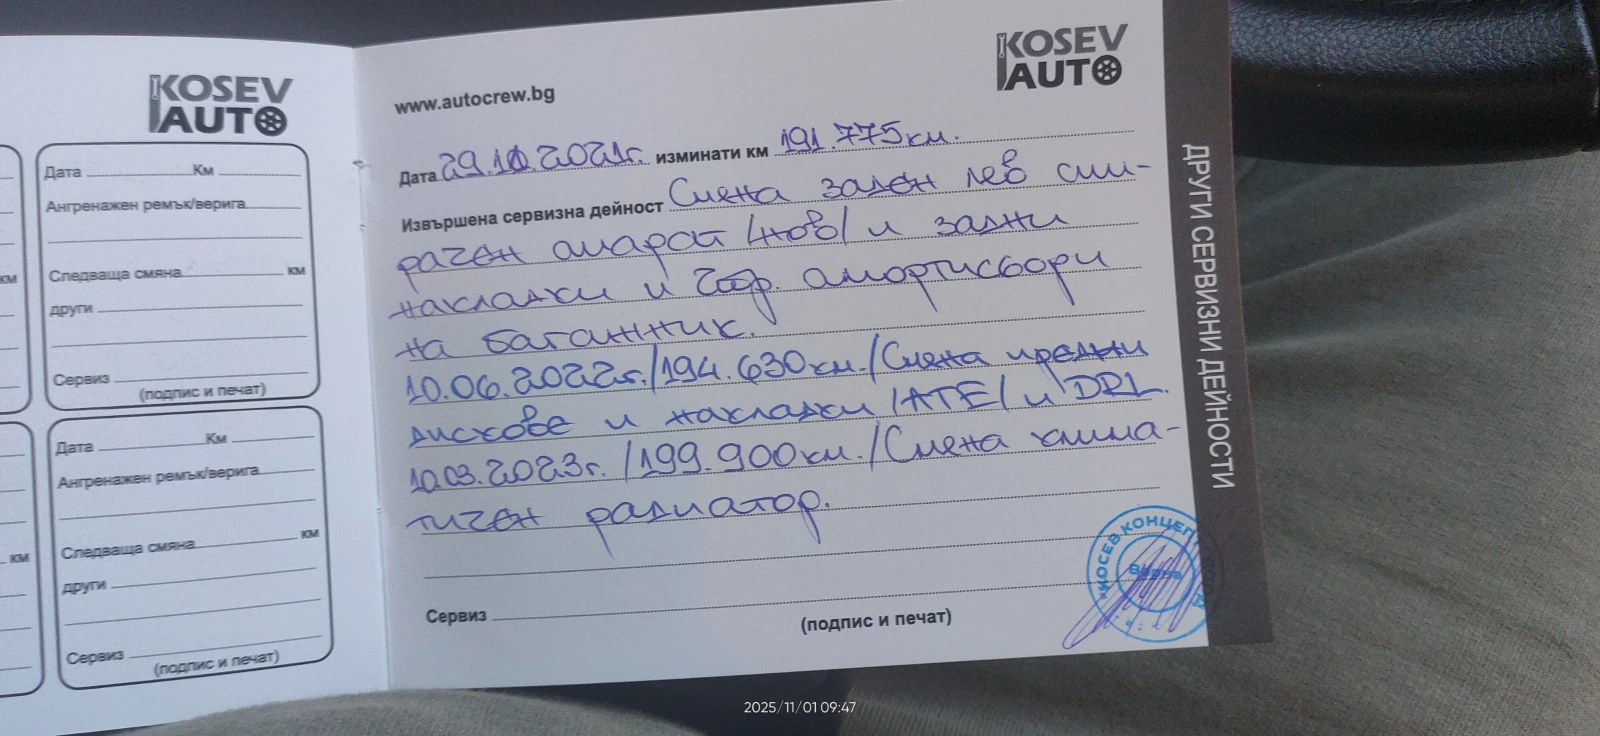 KOSEV
AUTO
Дата Км
Ангренажен ремък/верига
Следваща смяна км
други
Сервиз
(подпис и печат)
Дата Км
Ангренажен ремък/верига
Следваща смяна км
други
Сервиз
(подпис и печат)
км
км
KOSEV
AUTO
www.autocrew.bg
Дата 29.10.2021г. изминати км 191.775км.
Извършена сервизна дейност Смяна заден лев спи-
рачен апарат /нов/ и задни
накладки и 2бр. амортисьори
на багажник.
10.06.2022г./194.630км./Смяна предни
дискове и накладки /ATE/ и DRL.
10.03.2023г./199.900км./Смяна клима-
тичен радиатор.
Сервиз
(подпис и печат)
ДРУГИ СЕРВИЗНИ ДЕЙНОСТИ
КОСЕВ КОНЦЕПТ
Варна
2025/11/01 09:47